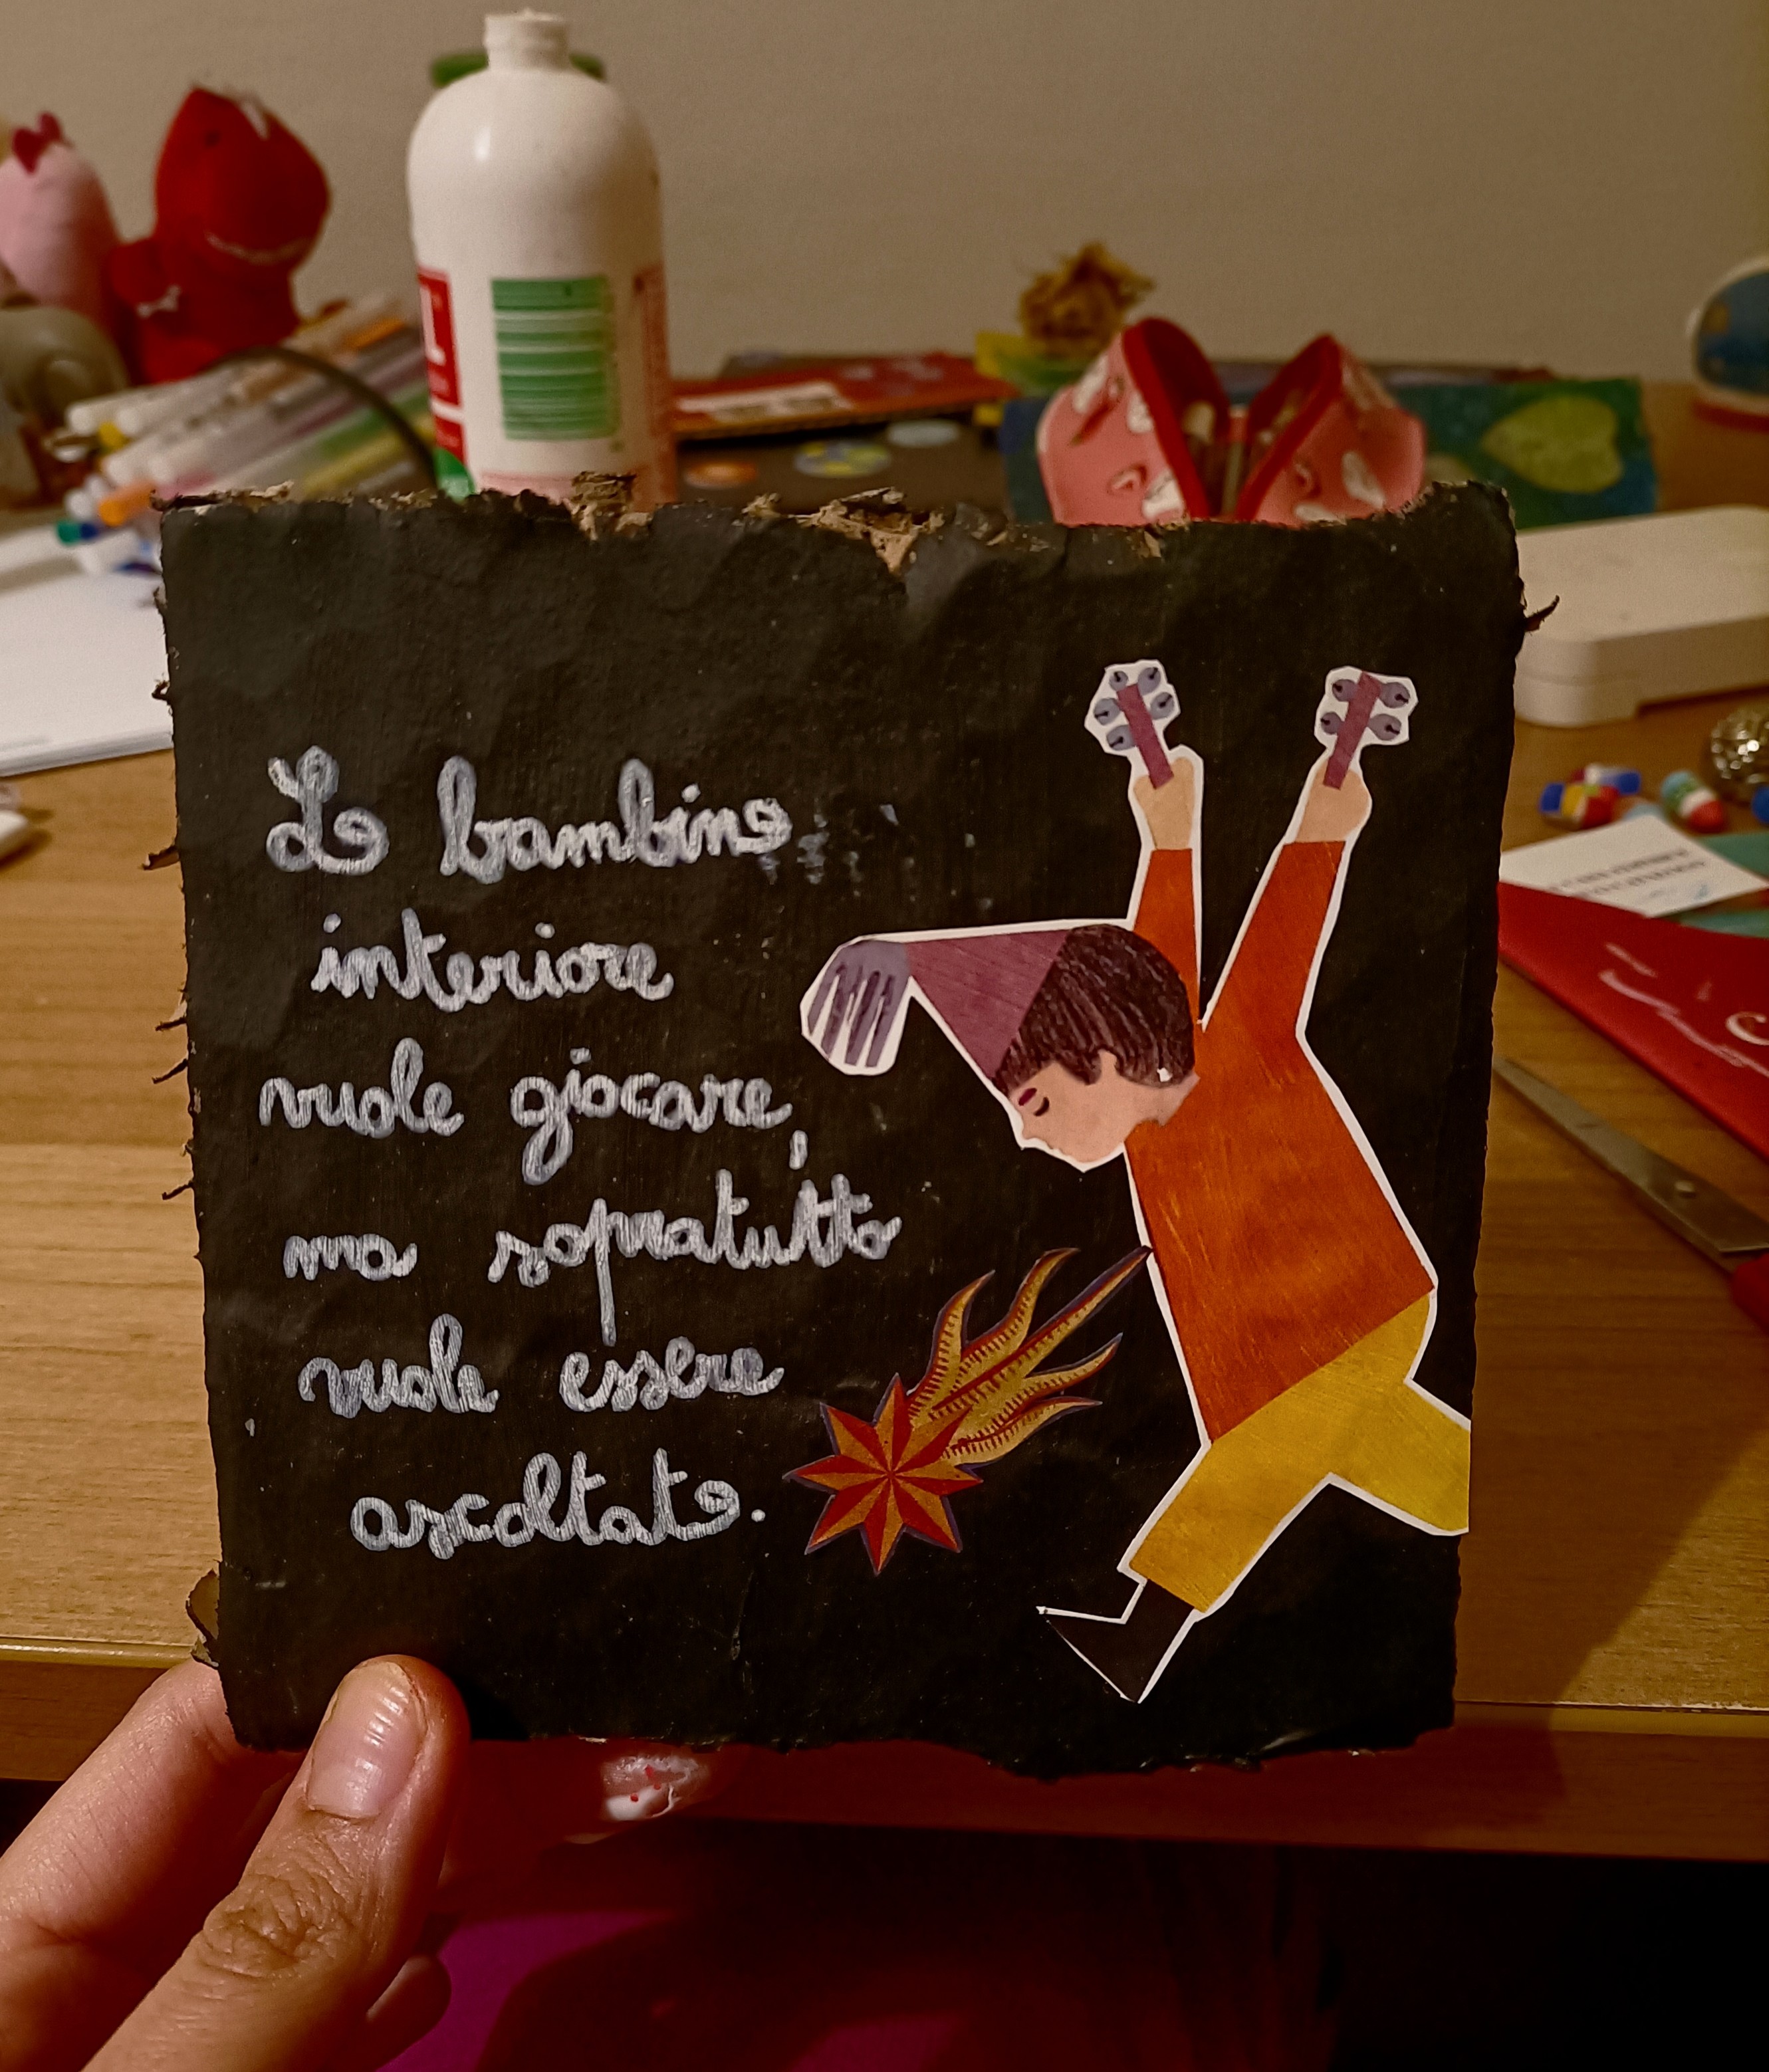 Lə bambinə
interiore
vuole giocare,
ma sopratutto
vuole essere
ascoltatə.